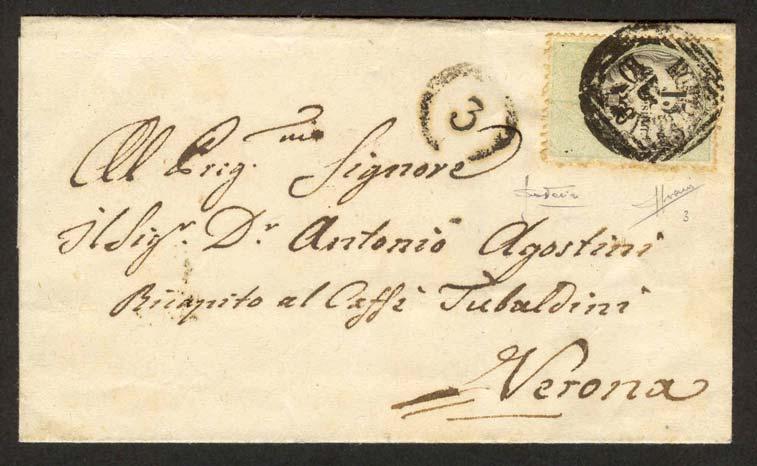 3
15
All Preg.mio Signore
Il Sigr. Dr. Antonio Agostini
Ricapito al Caffè Tubaldini
Verona
3